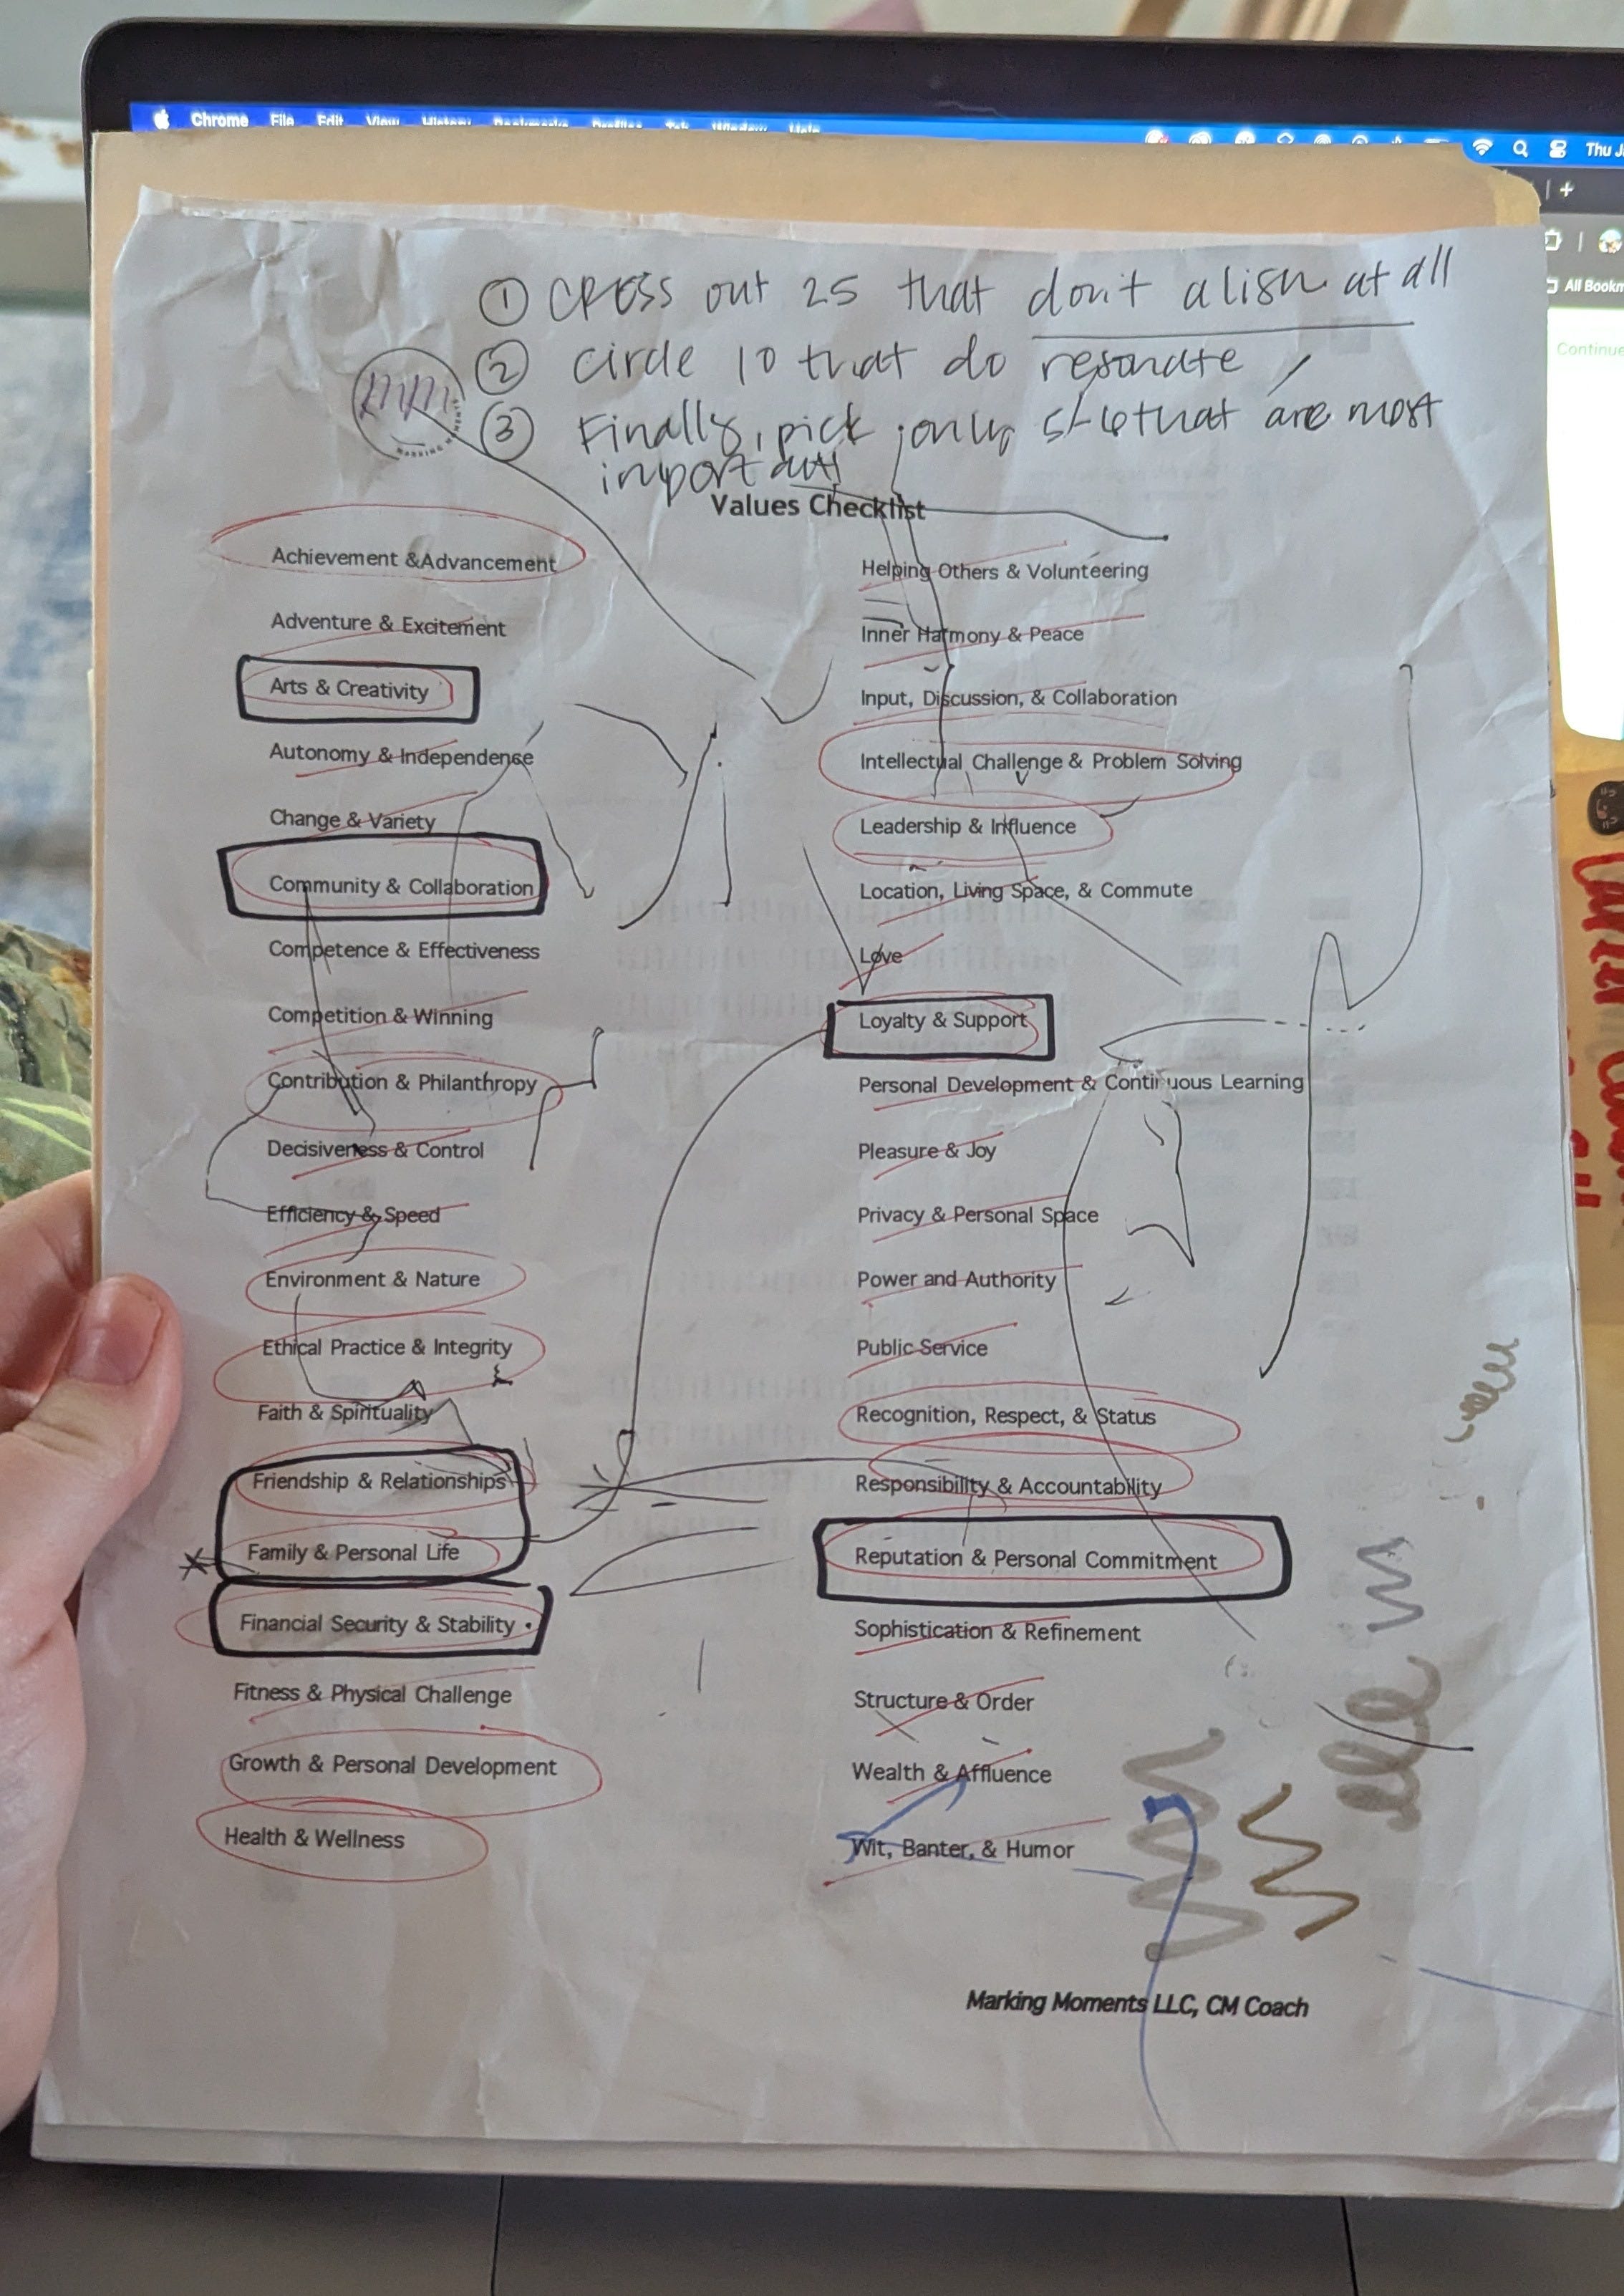 Chrome File Edit View History Bookmarks Profiles Tab Window Help
Thu
All Bookm
Continue
① CROSS out 25 that don't align at all
② circle 10 that do resonate
③ Finally, pick only 5-6 that are most
important
MM
MARKING MOMENTS
Values Checklist
Achievement &Advancement
Adventure & Excitement
Arts & Creativity
Autonomy & Independence
Change & Variety
Community & Collaboration
Competence & Effectiveness
Competition & Winning
Contribution & Philanthropy
Decisiveness & Control
Efficiency & Speed
Environment & Nature
Ethical Practice & Integrity
Faith & Spirituality
Friendship & Relationships
Family & Personal Life
Financial Security & Stability
Fitness & Physical Challenge
Growth & Personal Development
Health & Wellness
Helping Others & Volunteering
Inner Harmony & Peace
Input, Discussion, & Collaboration
Intellectual Challenge & Problem Solving
Leadership & Influence
Location, Living Space, & Commute
Love
Loyalty & Support
Personal Development & Continuous Learning
Pleasure & Joy
Privacy & Personal Space
Power and Authority
Public Service
Recognition, Respect, & Status
Responsibility & Accountability
Reputation & Personal Commitment
Sophistication & Refinement
Structure & Order
Wealth & Affluence
Wit, Banter, & Humor
Marking Moments LLC, CM Coach